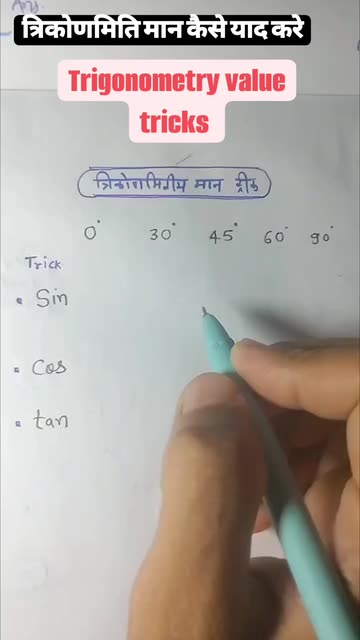 Ans.
त्रिकोणमिति मान कैसे याद करे
Trigonometry value
tricks
त्रिकोणमितीय मान ट्रीक
0° 30° 45° 60° 90°
Trick
Sin
Cos
tan